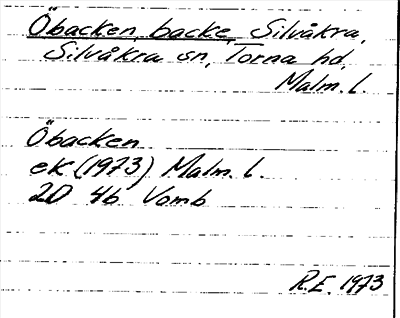 Öbacken, backe, Silvåkra,
Silvåkra sn, Torna hd,
Malm. l.
Öbacken
ek (1973) Malm. l.
2D 4b Vomb
R.E. 1973